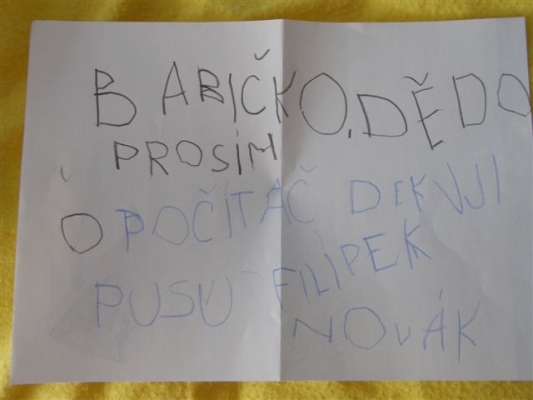 BABIČKO, DĚDO
PROSÍM
O POČÍTAČ DEKUJI
PUSU FILÍPEK
NOVÁK